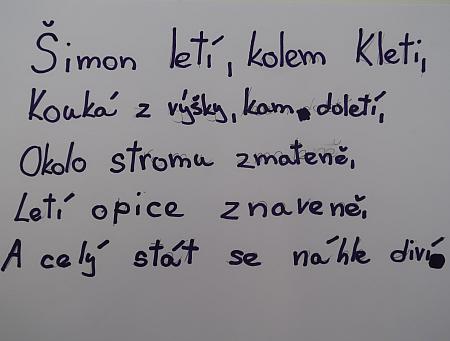 Šimon letí, kolem Kleti,
Kouká z výšky, kam doletí,
Okolo stromu zmateně,
Letí opice znaveně,
A celý stát se náhle diví.